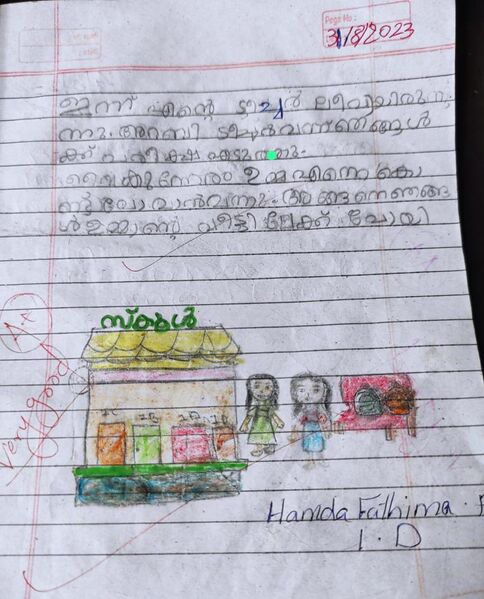 Page No :
31/8/2023
ഇന്ന് എന്റെ ടീച്ചർ ലീവായിരുന്നു
ന്നു. അറബി ടീച്ചർ വന്ന് ഞങ്ങൾ
ക്ക് പരീക്ഷ എടുത്തു.
വൈകുന്നേരം ഉമ്മ എന്നെ കൊ
ണ്ട് പോവാൻ വന്നു. അങ്ങനെ ഞങ്ങ
ൾ വീട്ടിലേക്ക് പോയി
സ്കൂൾ
A+
Very good
Hamda Fathima
1. D